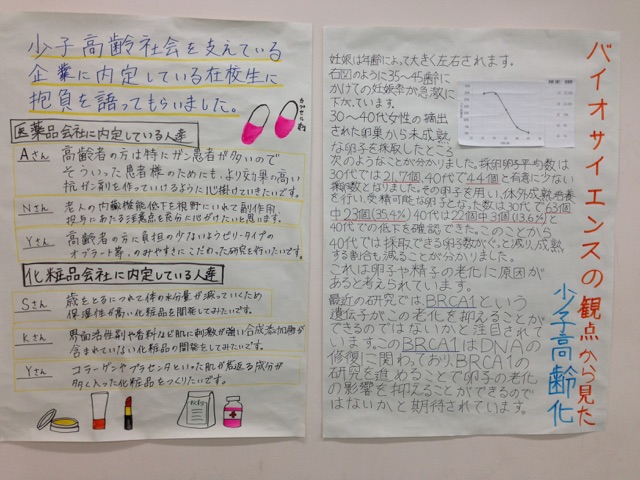 少子高齢社会を支えている
企業に内定している在校生に
抱負を語ってもらいました。
医薬品会社に内定している人達
Aさん 高齢者の方は特にガン患者が多いので
そういった患者様のためにも、より効果の高い
抗ガン剤を作っていけるように心掛けていきたいです。
Nさん 老人の内臓機能低下を視野にいれて副作用、
投与にあたる注意点を自分に心がけたいと思います。
Yさん 高齢者の方に負担の少ないようゼリータイプの
オブラート等、のみやすさにこだわった研究を行いたいです。
化粧品会社に内定している人達
Sさん 歳をとるにつれて体の水分量が減っていくため
保湿性が高い化粧品を開発をしてみたいです。
Kさん 界面活性剤や香料など肌に刺激が強い合成添加物が
含まれていない化粧品の開発をしてみたいです。
Yさん コラーゲンやプラセンタといった肌が若返る成分が
多く入った化粧品をつくりたいです。
バイオサイエンスの観点から見た
少子高齢化
妊娠は年齢によって大きく左右されます。
右図のように35～45歳に
かけての妊娠率が急激に
下がっています。
30～40代女性の摘出
された卵巣から未成熟
な卵子を採取したところ
次のようなことが分かりました。採卵卵子平均数は
30代では21.7個、40代で4.4個と有意に少ない
採卵数となりました。その卵子を用い、体外成熟培養
を行い、受精可能な卵子となった数は30代で63個
中23個(35.4%)40代は22個中3個(13.6%)と
40代での低下を確認できた。このことから
40代では採取できる卵子数がぐっと減り、成熟
する割合も減ることが分かりました。
これは卵子や精子の老化に原因が
あると考えられています。
最近の研究では、BRCA1という
遺伝子がこの老化を抑えることが
できるのではないかと注目されて
います。このBRCA1はDNAの
修復に関わっており、BRCA1の
研究を進めることで卵子の老化
の影響を抑えることができるので
はないかと期待されています。